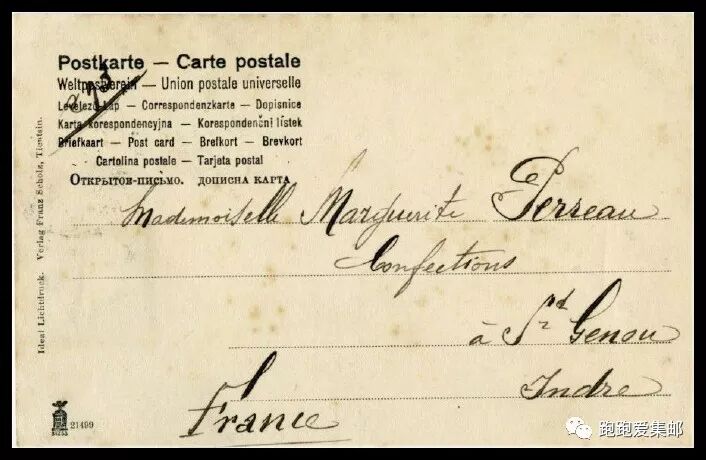 Postkarte — Carte postale
Weltpostverein — Union postale universelle
Levelező-Lap — Correspondenzkarte — Dopisnice
Karta korespondencyjna — Korespondenční lístek
Briefkaart — Post card — Brefkort — Brevkort
Cartolina postale — Tarjeta postal
Открытое-письмо. дописна карта
Mademoiselle Marguerite Perreau
Confections
à St Genou
Indre
France
Ideal Lichtdruck. Verlag Franz Scholz, Tientsin.
21499
跑跑爱集邮